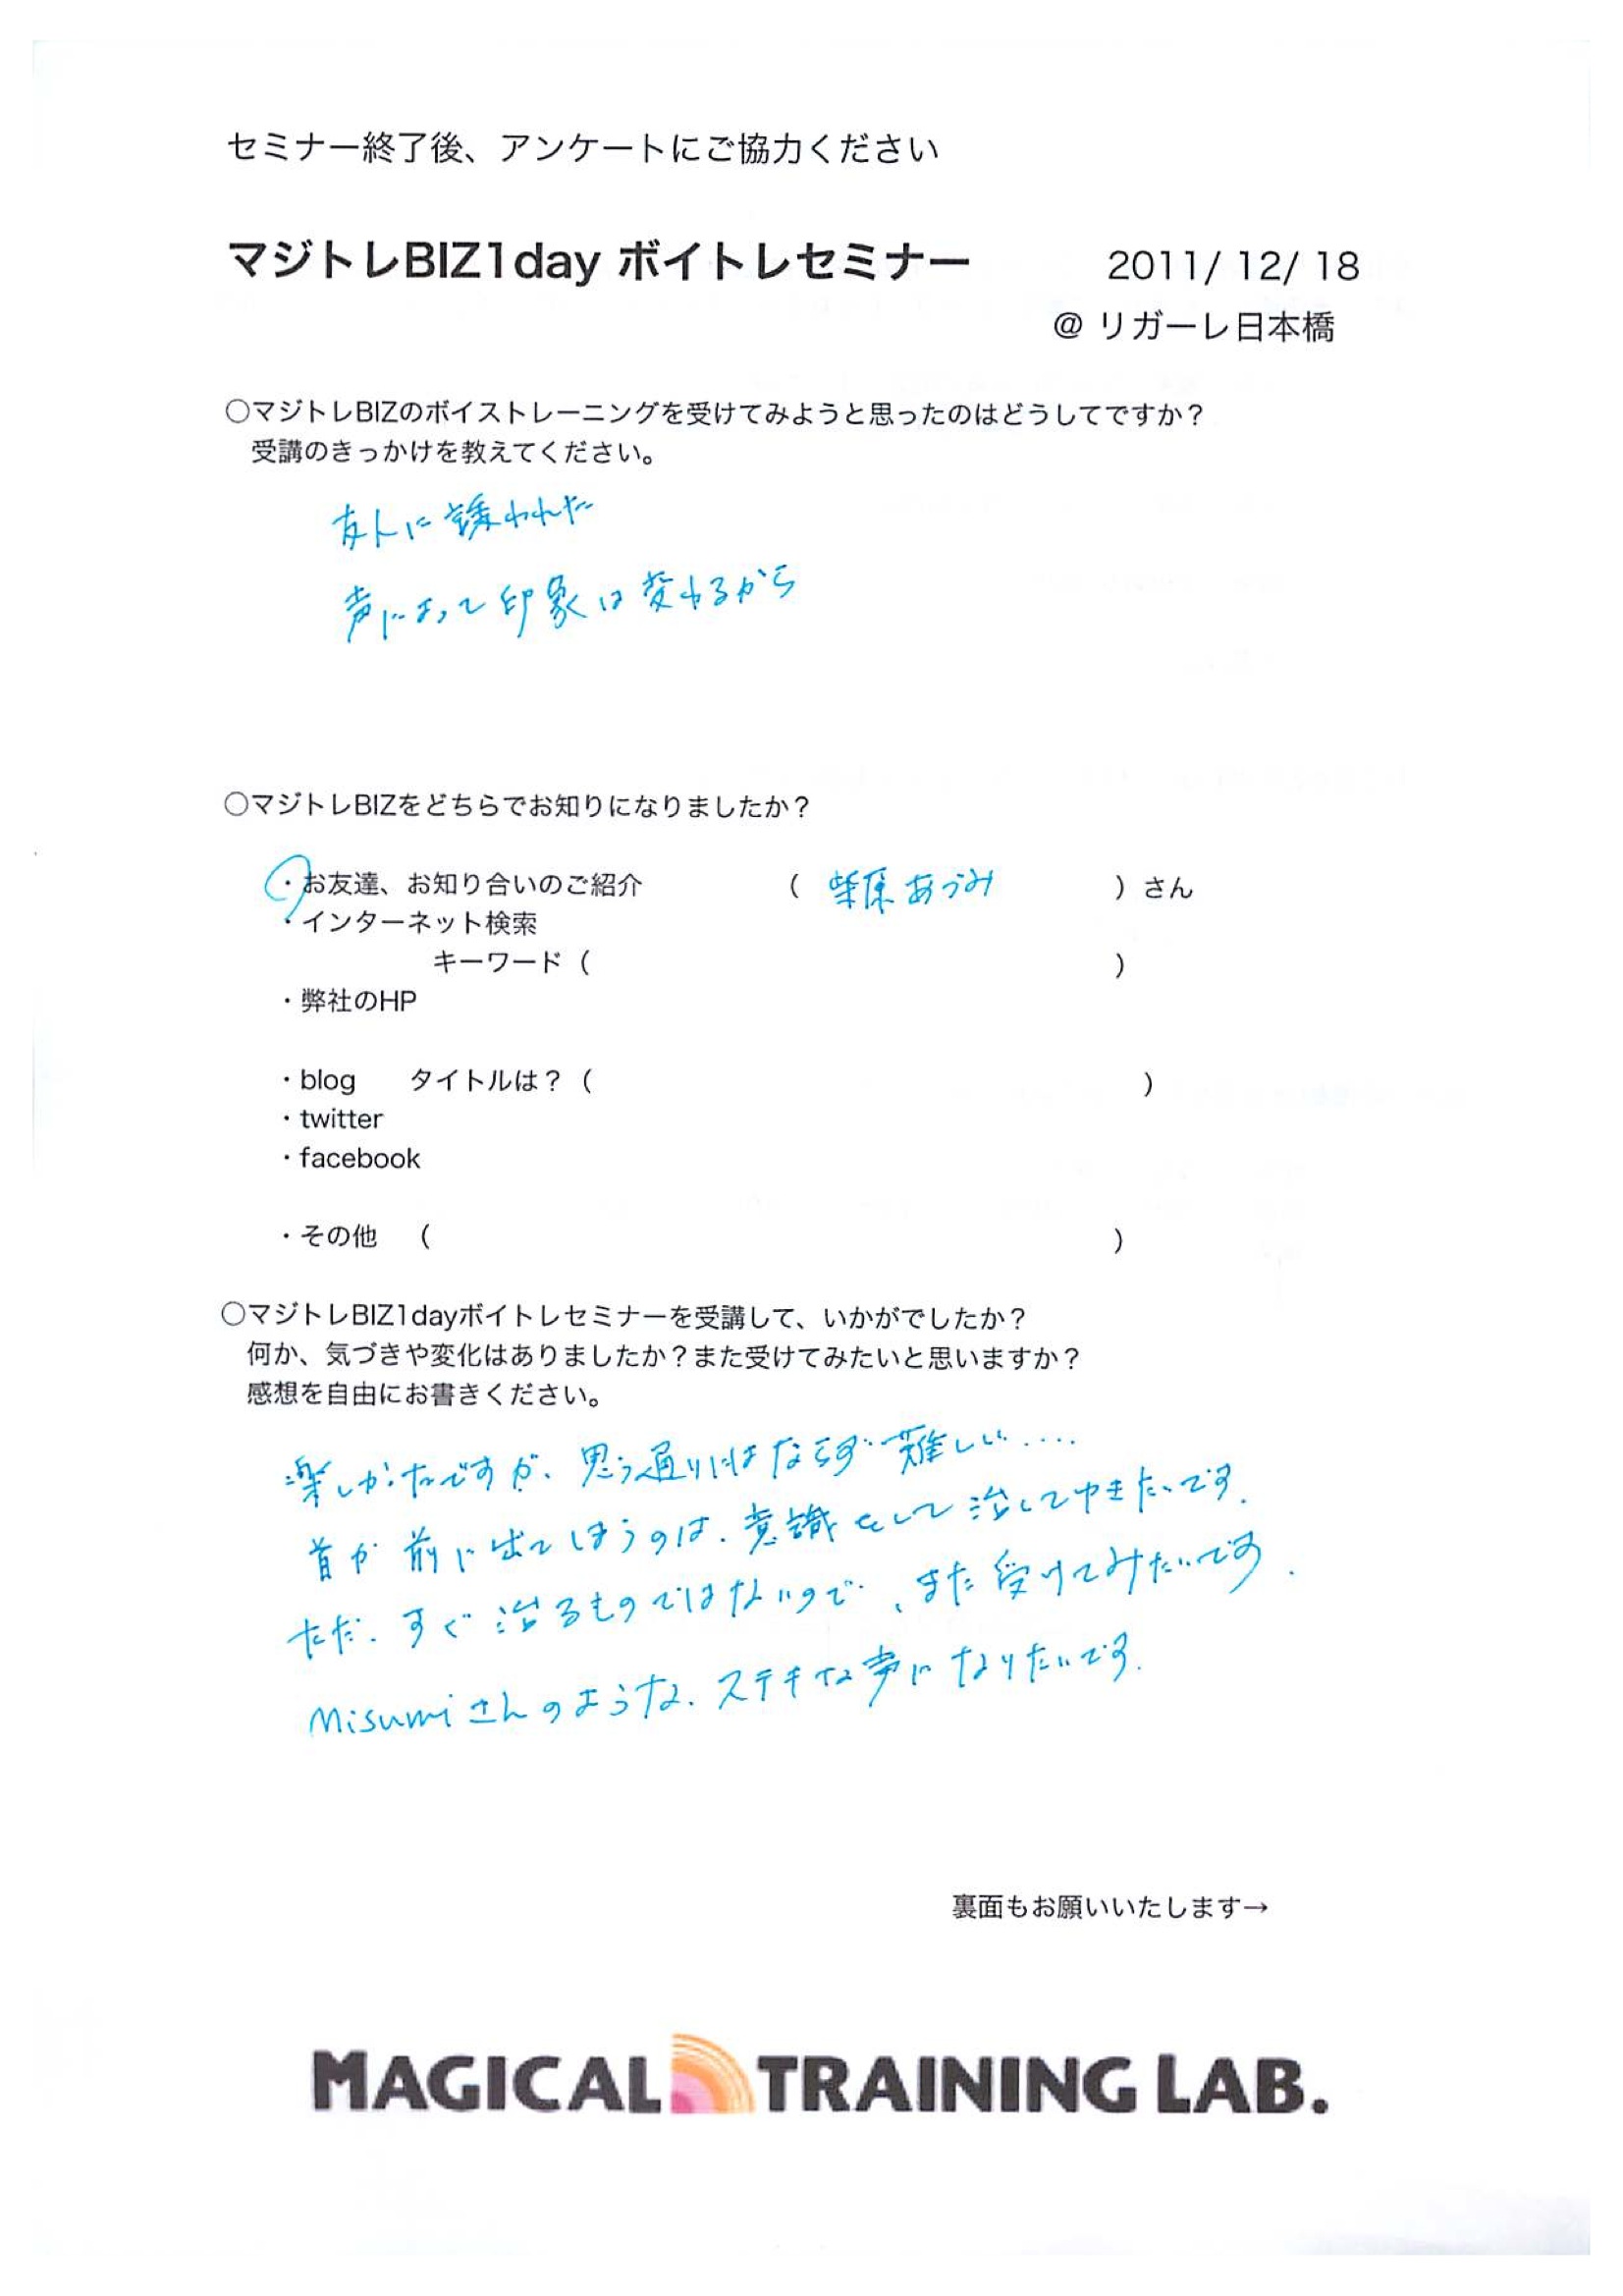 セミナー終了後、アンケートにご協力ください
マジトレBIZ1day ボイトレセミナー 2011/ 12/ 18
@ リガーレ日本橋
○マジトレBIZのボイストレーニングを受けてみようと思ったのはどうしてですか？
受講のきっかけを教えてください。
友人に誘われた
声によって印象は変わるから
○マジトレBIZをどちらでお知りになりましたか？
・お友達、お知り合いのご紹介 ( 柴原あづみ ) さん
・インターネット検索
キーワード ( )
・弊社のHP
・blog タイトルは？ ( )
・twitter
・facebook
・その他 ( )
○マジトレBIZ1dayボイトレセミナーを受講して、いかがでしたか？
何か、気づきや変化はありましたか？また受けてみたいと思いますか？
感想を自由にお書きください。
楽しかったですが、思う通りにはならず難しい....
首が前に出てしまうのは、意識をして治してゆきたいです.
ただ、すぐ治るものではないので、また受けてみたいです.
Misumiさんのような、ステキな声になりたいです.
裏面もお願いいたします→
MAGICAL TRAINING LAB.